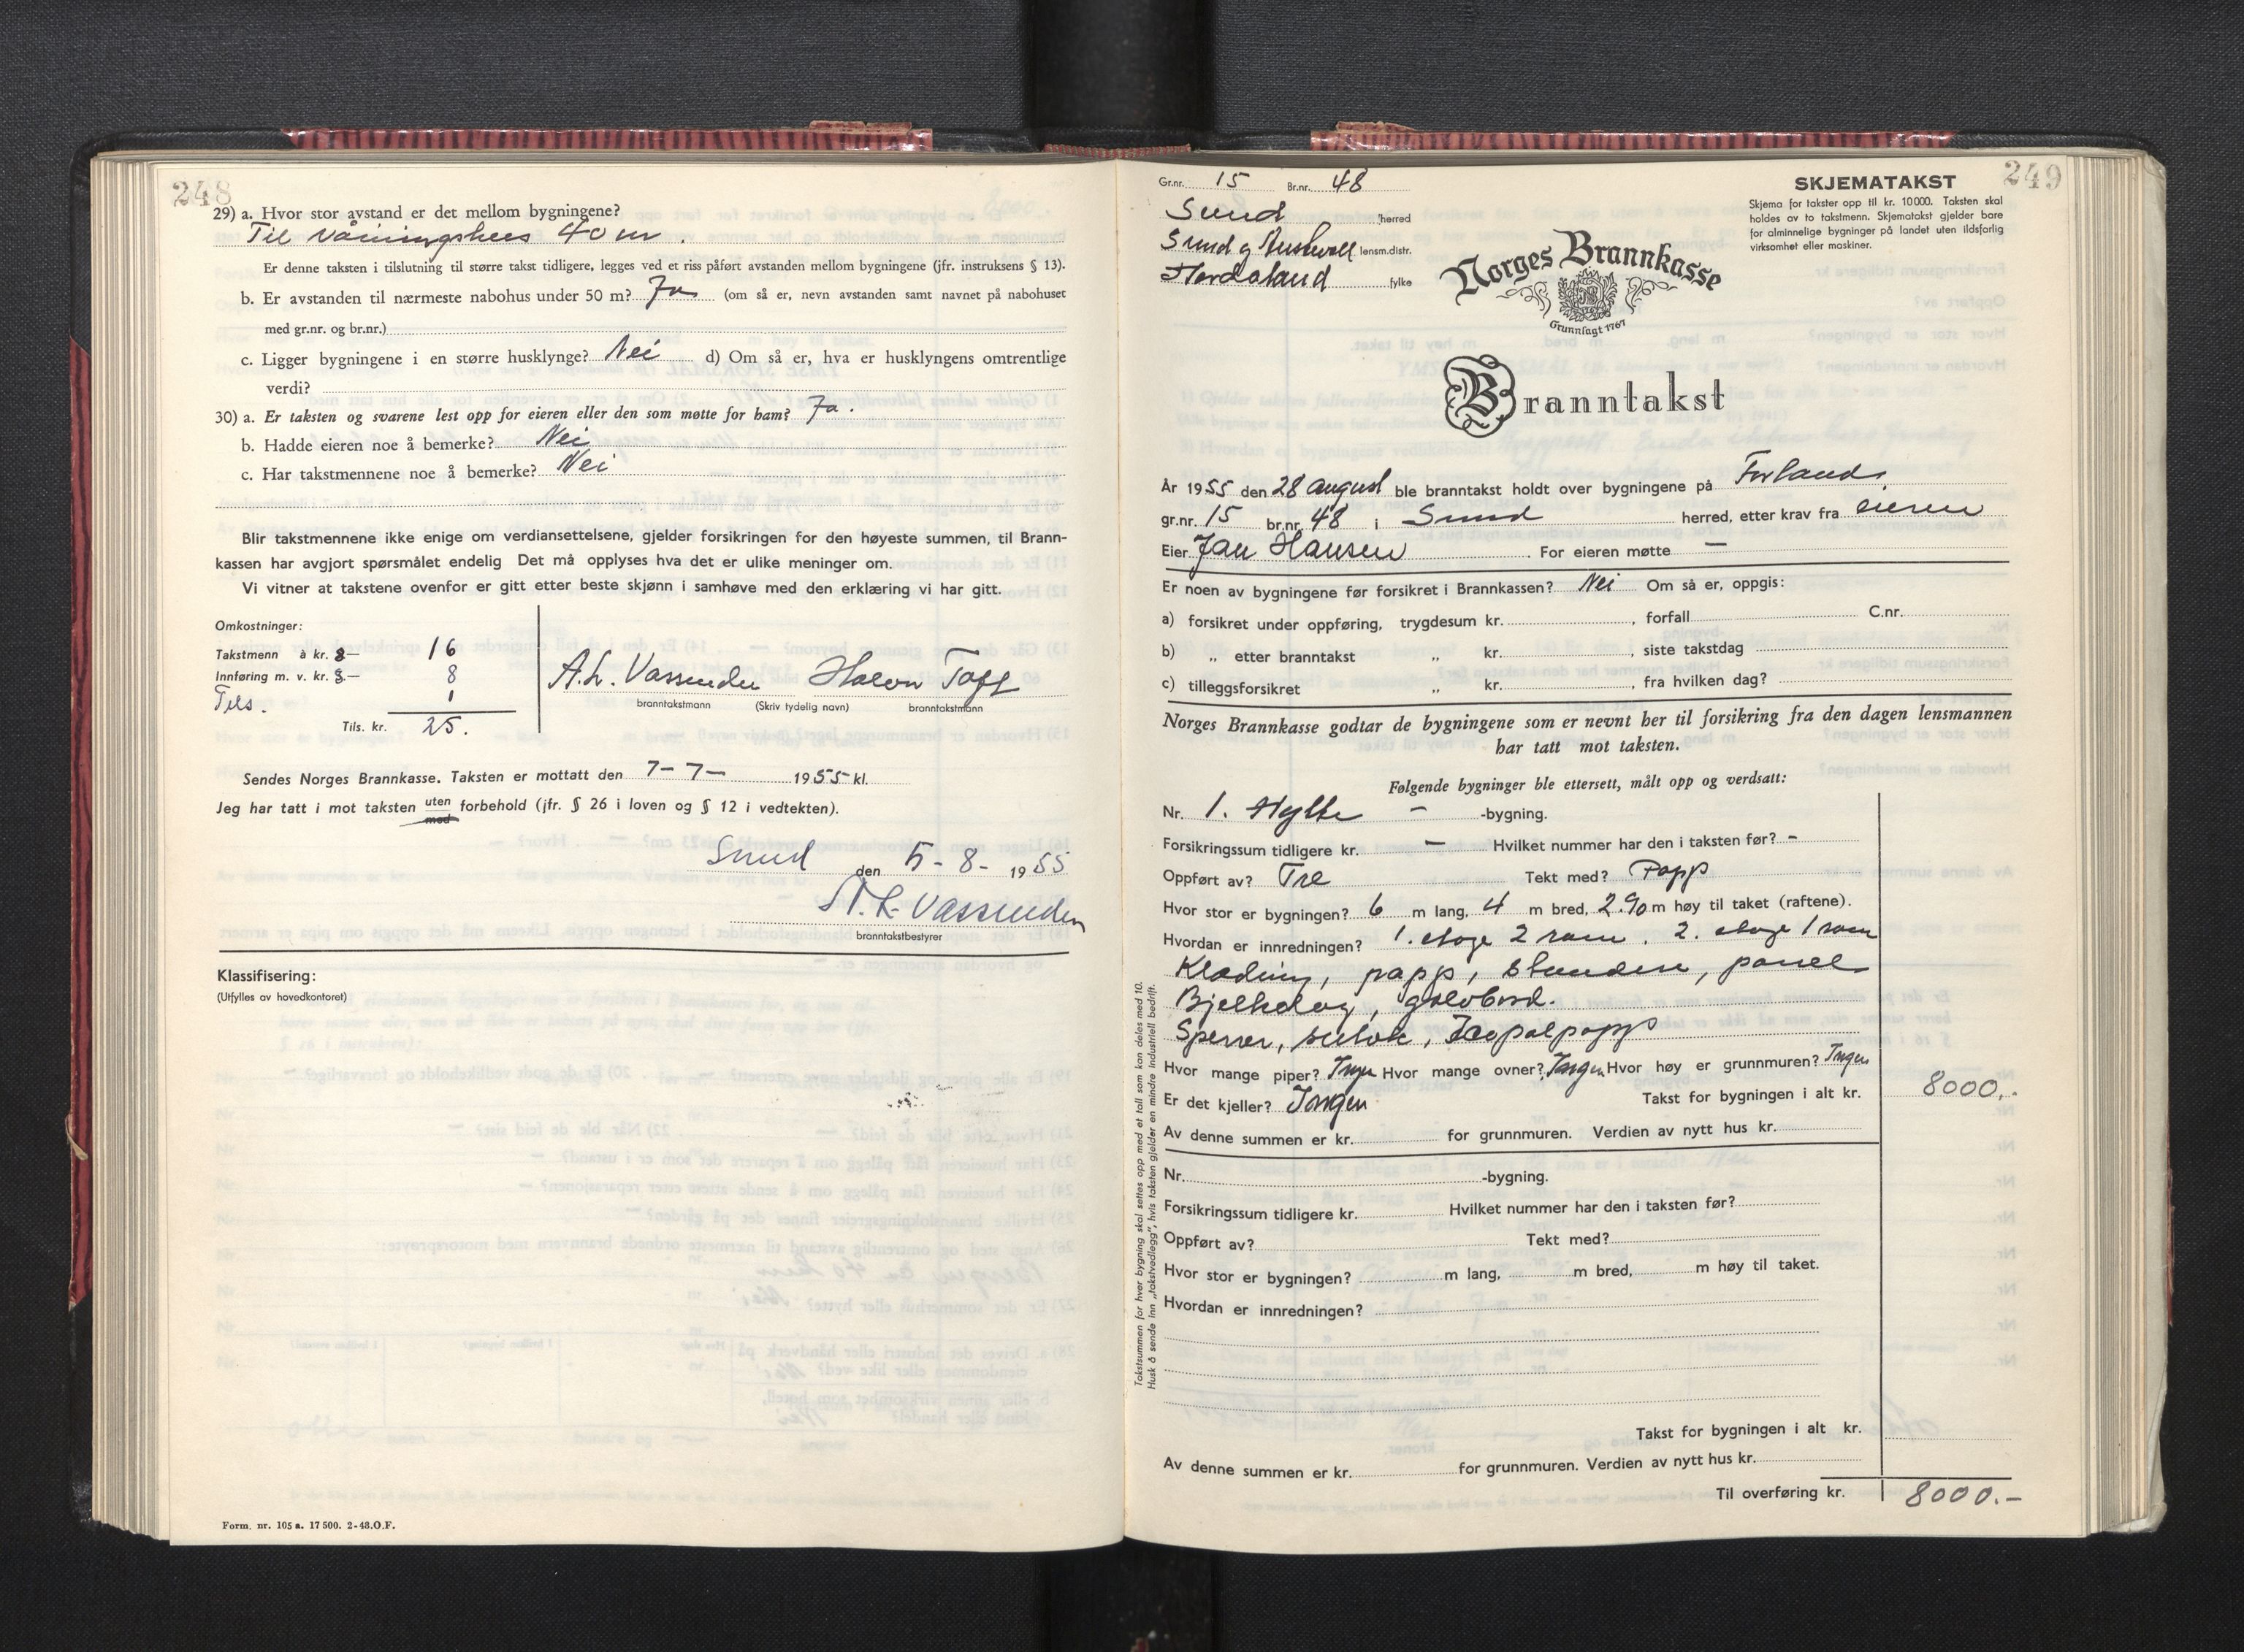 248
29) a. Hvor stor avstand er det mellom bygningene?
Til våningshus 40 m.
Er denne taksten i tilslutning til større takst tidligere, legges ved et riss påført avstanden mellom bygningene (jfr. instruksens § 13).
b. Er avstanden til nærmeste nabohus under 50 m? Ja (om så er, nevn avstanden samt navnet på nabohuset
med gr.nr. og br.nr.)
c. Ligger bygningene i en større husklynge? Nei d) Om så er, hva er husklyngens omtrentlige
verdi?
30) a. Er taksten og svarene lest opp for eieren eller den som møtte for ham? Ja.
b. Hadde eieren noe å bemerke? Nei
c. Har takstmennene noe å bemerke? Nei
Blir takstmennene ikke enige om verdiansettelsene, gjelder forsikringen for den høyeste summen, til Brann-
kassen har avgjort spørsmålet endelig Det må opplyses hva det er ulike meninger om.
Vi vitner at takstene ovenfor er gitt etter beste skjønn i samhøve med den erklæring vi har gitt.
Omkostninger:
Takstmenn à kr. 8— 16
Innføring m. v. kr. 8.— 8
Tils. 1
Tils. kr. 25.
A. L. Vassenden Halvor Toft
branntakstmann (Skriv tydelig navn) branntakstmann
Sendes Norges Brannkasse. Taksten er mottatt den 7-7- 1955 kl.
Jeg har tatt i mot taksten uten forbehold (jfr. § 26 i loven og § 12 i vedtekten).
med
Sund den 5-8- 1955
A. L. Vassenden
branntakstbestyrer
Klassifisering:
(Utfylles av hovedkontoret)
Form. nr. 105 a. 17 500. 2-48.O.F.
249
Gr.nr. 15 Br.nr. 48
Sund herred
Sund og Austevoll lensm.distr.
Hordaland fylke
SKJEMATAKST
Skjema for takster opp til kr. 10000. Taksten skal
holdes av to takstmenn. Skjematakst gjelder bare
for alminnelige bygninger på landet uten ildsfarlig
virksomhet eller maskiner.
Norges Brannkasse
Grunnlagt 1767
Branntakst
År 1955 den 28 august ble branntakst holdt over bygningene på Forland
gr.nr. 15 br.nr. 48 i Sund herred, etter krav fra eieren
Eier Jan Hansen For eieren møtte —
Er noen av bygningene før forsikret i Brannkassen? Nei Om så er, oppgis:
a) forsikret under oppføring, trygdesum kr. , forfall C.nr.
b) „ etter branntakst „ kr. , siste takstdag
c) tilleggsforsikret „ kr. , fra hvilken dag?
Norges Brannkasse godtar de bygningene som er nevnt her til forsikring fra den dagen lensmannen
har tatt mot taksten.
Følgende bygninger ble ettersett, målt opp og verdsatt:
Nr. 1. Hytte — -bygning.
Forsikringssum tidligere kr. — Hvilket nummer har den i taksten før? -
Oppført av? Tre Tekt med? Papp
Hvor stor er bygningen? 6 m lang, 4 m bred, 2.90 m høy til taket (raftene).
Hvordan er innredningen? 1. etage 2 rom. 2. etage 1 rom
Kledning, papp, standere, panel
Bjelkelag, golvbord.
Sperrer, sutak, Icopalpapp
Hvor mange piper? Ingen Hvor mange ovner? Ingen Hvor høy er grunnmuren? Ingen
Er det kjeller? Ingen Takst for bygningen i alt kr. 8000.-
Av denne summen er kr. for grunnmuren. Verdien av nytt hus kr.
Nr. -bygning.
Forsikringssum tidligere kr. Hvilket nummer har den i taksten før?
Oppført av? Tekt med?
Hvor stor er bygningen? m lang, m bred, m høy til taket.
Hvordan er innredningen?
Takst for bygningen i alt kr.
Av denne summen er kr. for grunnmuren. Verdien av nytt hus kr.
Til overføring kr. 8000.-
Takstsummen for hver bygning skal settes opp med et tall som kan deles med 10.
Husk å sende inn „takstvedlegg", hvis taksten gjelder en mindre industriell bedrift.